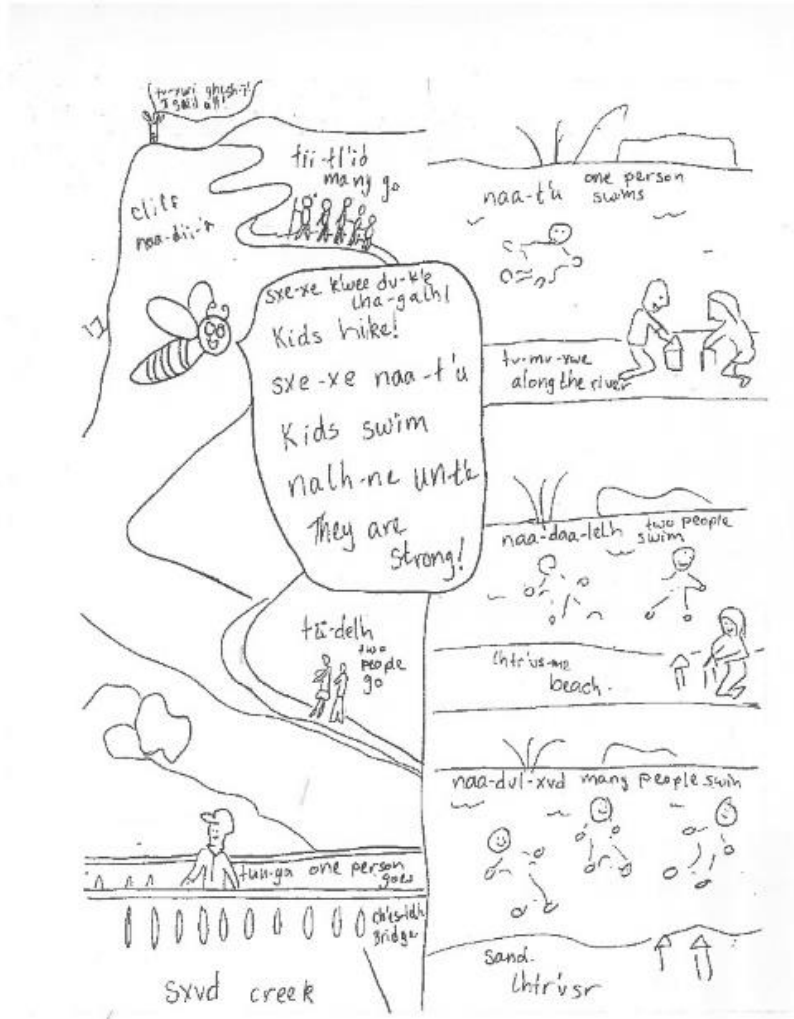 tv-xwi ghesh-
I said all!
tii-tl'id
many go
cliff
naa-dii-a
sxe-xe k'wee du-k'e
lha-galh!
Kids hike!
sxe-xe naa-t'u
Kids swim
nalh-ne un-t'e
They are
strong!
tii-delh
two
people
go
tuu-ga one person
goes
Bridge
sxvd creek
naa-t'u one person
swims
tv-mv-xwe
along the river
naa-daa-lelh two people
swim
lhtr'us-me
beach.
naa-dvl-xvd many people swim
sand.
lhtr'vsr